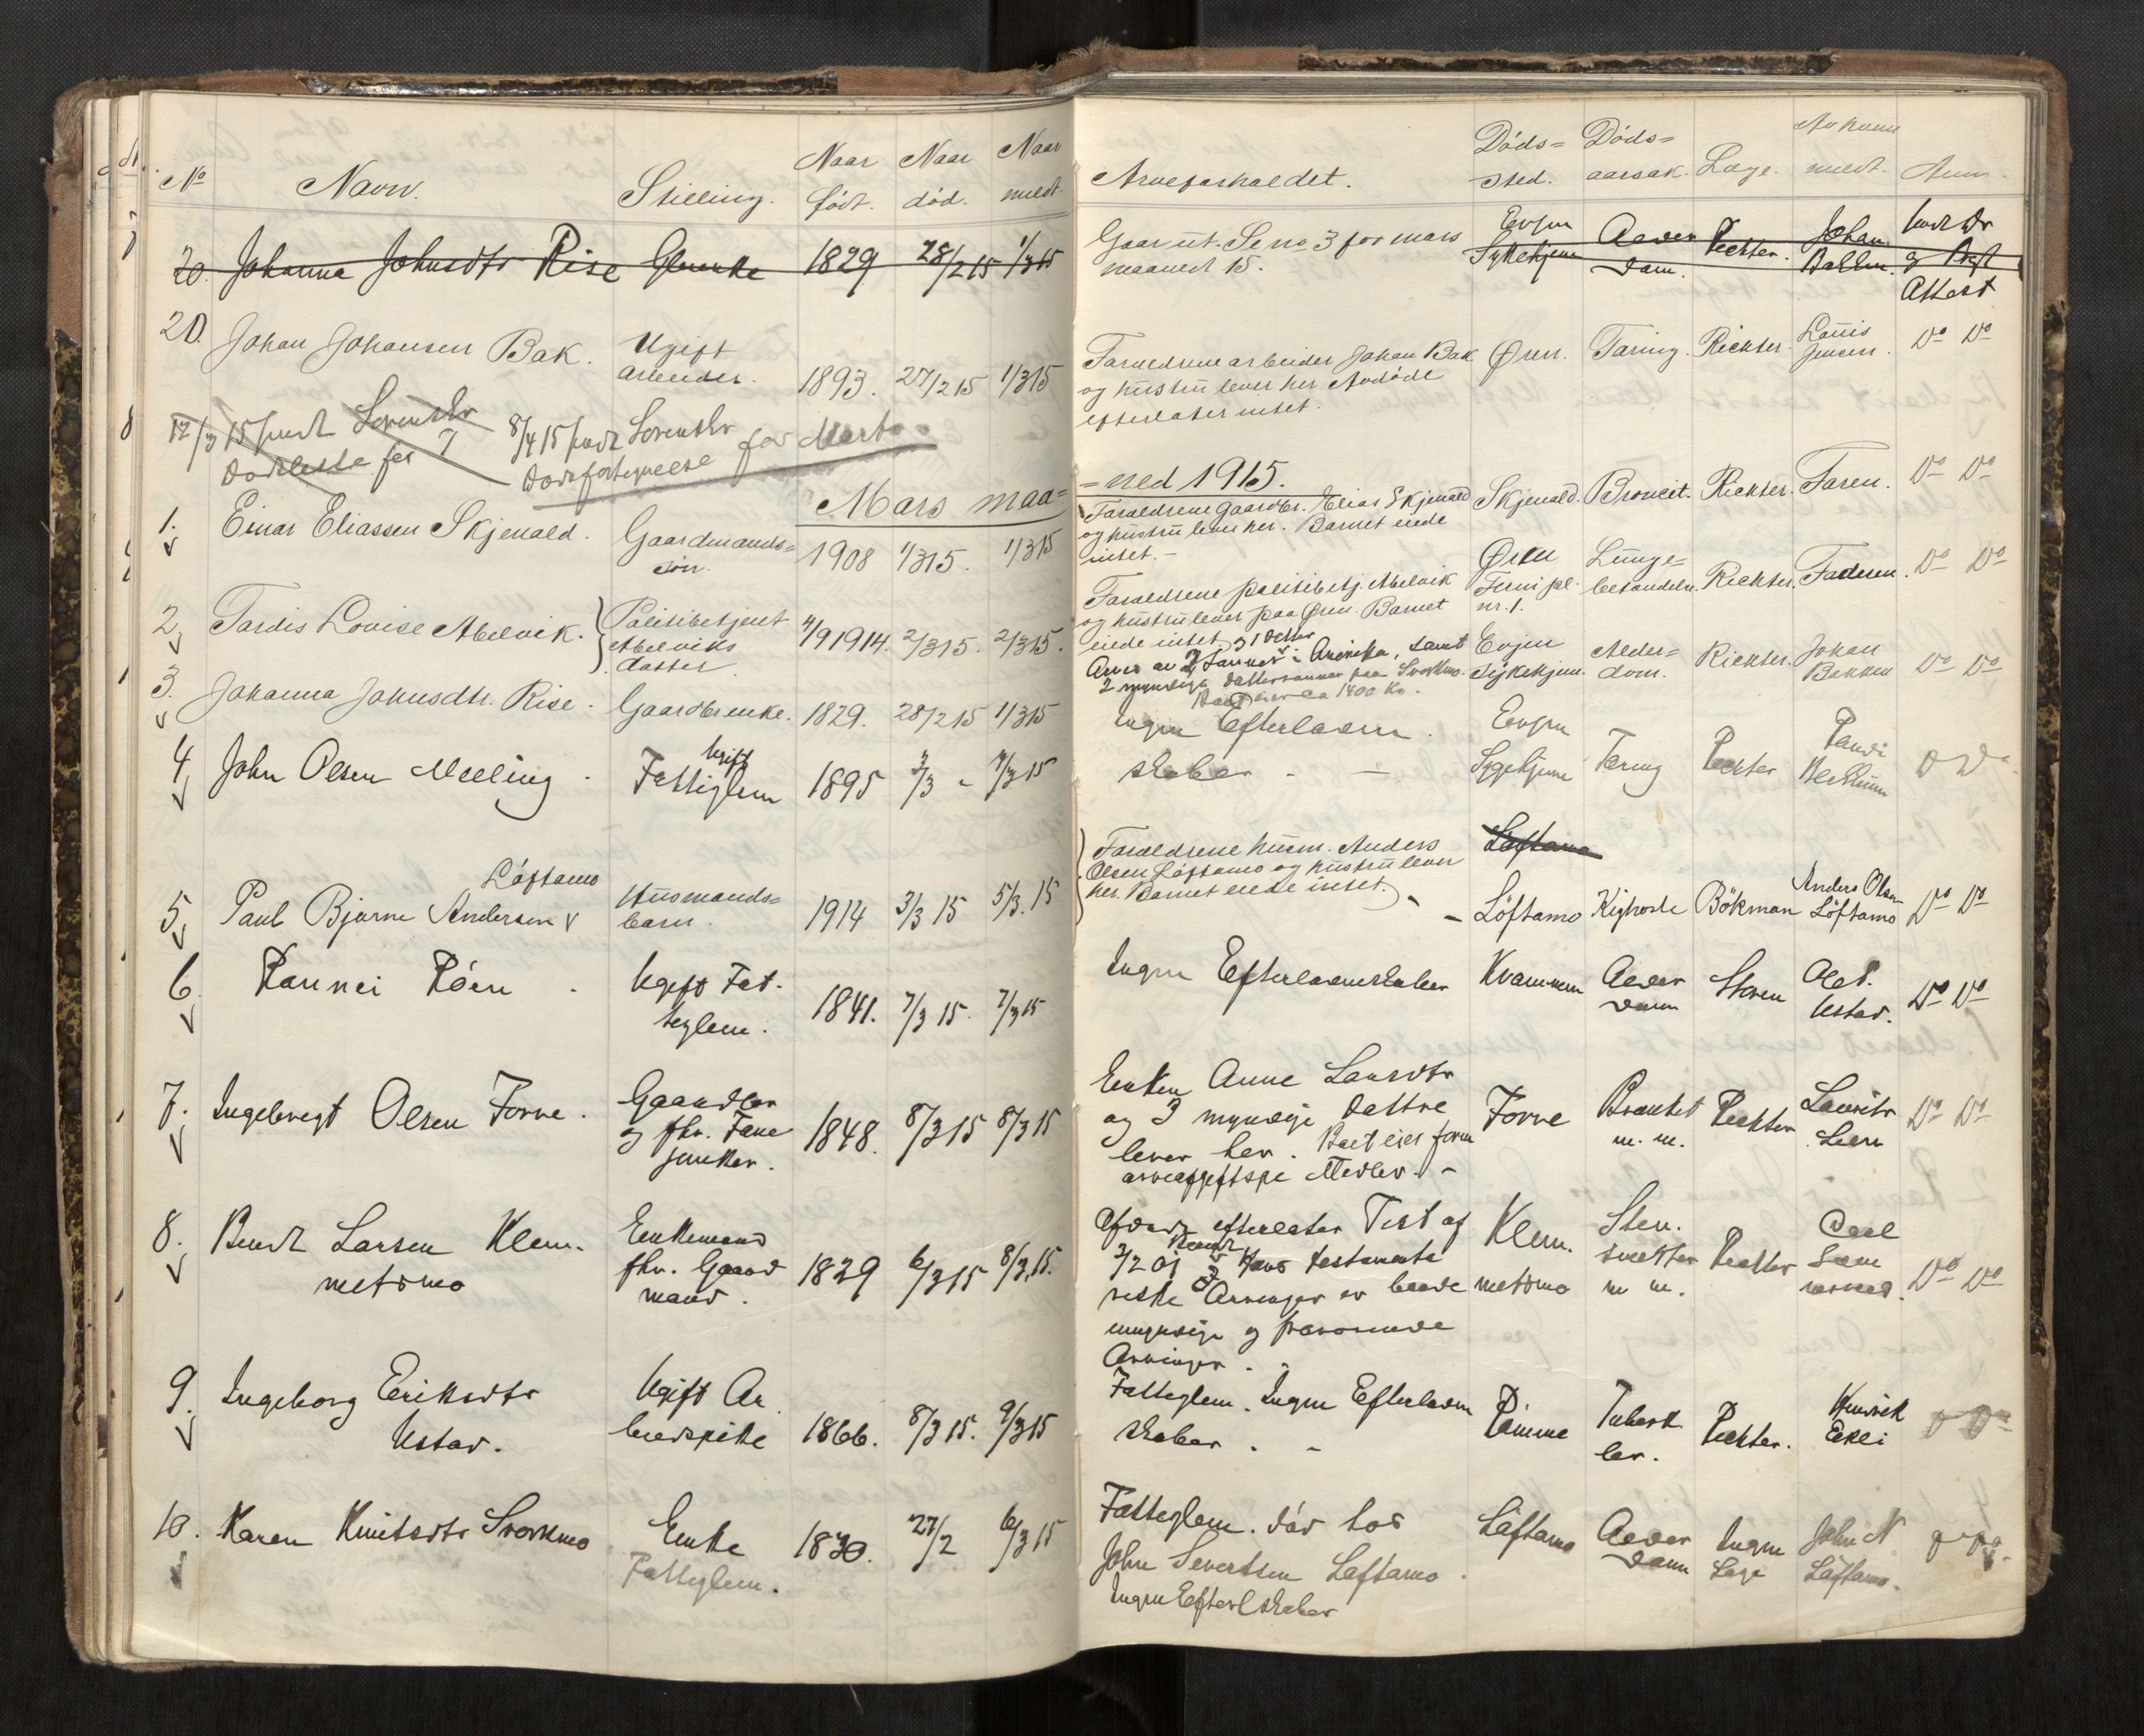 No Navn. Stilling. Naar født. Naar død. Naar meldt. Arveforholdet. Døds= sted. Døds= aarsak. Læge. Av hvem meldt. Anm.
20. Johanna Johnsdtr Rise Gbrenke 1829 28/2 15 1/3 15 Gaar ut. Se no 3 for mars maaned 15. Evjen Sykehjem Alder dom. Richter. Johan Bakken.
Attest
20. Johan Johansen Bak. Ugift arbeider. 1893. 27/2 15 1/3 15
Foræeldrene arbeider Johan Bak
og hustru lever her Avdøde
efterlater intet.
Øren. Tæring. Richter. Louis Jensen. Do Do
12/3 15 sendt Sorenskr
Dødsliste for
8/4 15 sendt Sorenskr
Dødsfortegnelse for Marts
Mars maa=
=ned 1915.
1. Einar Eliassen Skjenald. Gaardmands= søn. 1908 1/3 15. 1/3 15
Forældrene gaardbr. Elias Skjenald
og hustru lever her. Barnet eiede
intet.-
Skjenald. Broncit. Richter. Faren. Do Do
2. Tordis Lovise Abelvik. Politibetjent Abelviks datter 4/9 1914. 2/3 15. 2/3 15.
Forældrene politibetj. Abelvik
og hustru lever paa Øren. Barnet
eiede intet
Øren nr. 1. Lunge= betændelse. Richter. Faderen. Do Do
3. Johanna Johnsdtr. Rise. Gaardbrenke. 1829. 28/2 15 1/3 15
Arves av 2 sønner i Amerika, samt
2 myndige dattersønner paa Svorkmo.
1400 Kr.
Evjen Sykehjem. Alder= dom. Richter. Johan Bakken Do Do
4. John Olsen Meeling Ugift Fattiglem 1895 3/3 - 7/3 15
Ingen Efterladen
skaber - -
Evjen Sygehjem Tæring Richter Do Do
5. Paul Bjarne Andersen Løftamo Husmands= barn. 1914 3/3 15 5/3. 15
Forældrene husm. Anders
Olsen Løftamo og hustru lever
her. Barnet eiede intet.
Løftamo
Løftamo Kighoste Bökman Anders Olsen Löftamo Do Do
6. Rannei Röen Ugift Fat- tiglem. 1841. 7/3 15. 7/3 15
Ingen Efterladenskaber Kvammen Alder dom Steen Ole E. Ustad. Do Do
7. Ingebregt Olsen Forve. Gaardbr og fhv. Fane junker. 1848. 8/3 15 8/3 15
Enken Anne Larsdtr
og 3 myndige Døttre
lever her. Boet eier form
arveafgiftspl Midler.-
Forve Bronkit m. m. Richter Lauritz Lien Do Do
8. Bendt Larsen Klem- metsmo Enkemand fhv. Gaard mand. 1829 6/3 15 8/3 15.
Afdøde efterlater Test af
3/2 01 Hans testamenta
riske Arvinger er baade
umyndige og fraværende
Arvinger.
Klem- metsmo Sten- smerter m m. Richter Do Do
9. Ingeborg Eriksdtr Ustad. Ugift Ar beidspike 1866. 8/3 15. 9/3 15
Fattiglem. Ingen Efterladen
skaber. -
Rømme Tuberk ler. Richter. Henrik Eckli Do
10. Karen Knutsdtr Svorkmo Enke Fattiglem. 1830. 27/2 6/3 15
Fattiglem. død hos
John Sivertsen Løftamo.
Ingen Efterl skaber
Løftamo Alder dom Ingen Læge John N Løftamo.